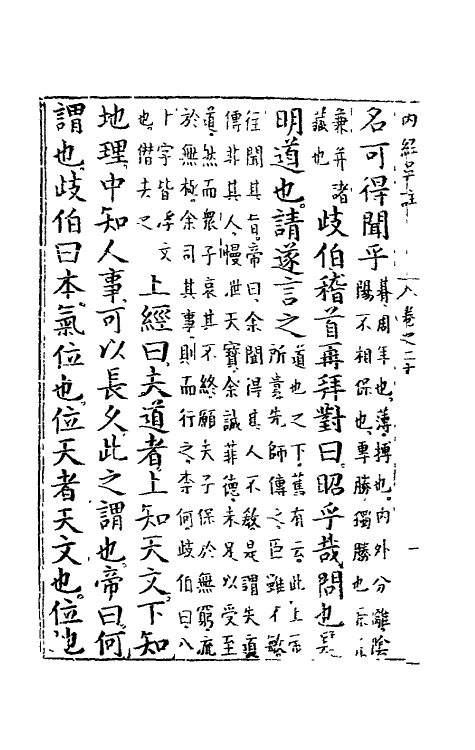 内經吳註 卷之二十 一
名可得聞乎
朞周年也薄搏也内外分離陰
陽不相保也專勝獨勝也
兼并諸
藏也
岐伯稽首再拜對曰昭乎哉問也是
明道也請遂言之
道也之下舊有云此上帝
所貴先師傳之臣雖不敏
往聞其旨帝曰余聞得其人不教是謂失道
傳非其人慢泄天寶余誠菲德未足以受至
道然而衆子哀其不終願夫子保於無窮流
於無極余司其事則而行之柰何岐伯曰八
十字皆浮文
也僭去之
上經曰夫道者上知天文下知
地理中知人事可以長久此之謂也帝曰何
謂也岐伯曰本氣位也位天者天文也位地